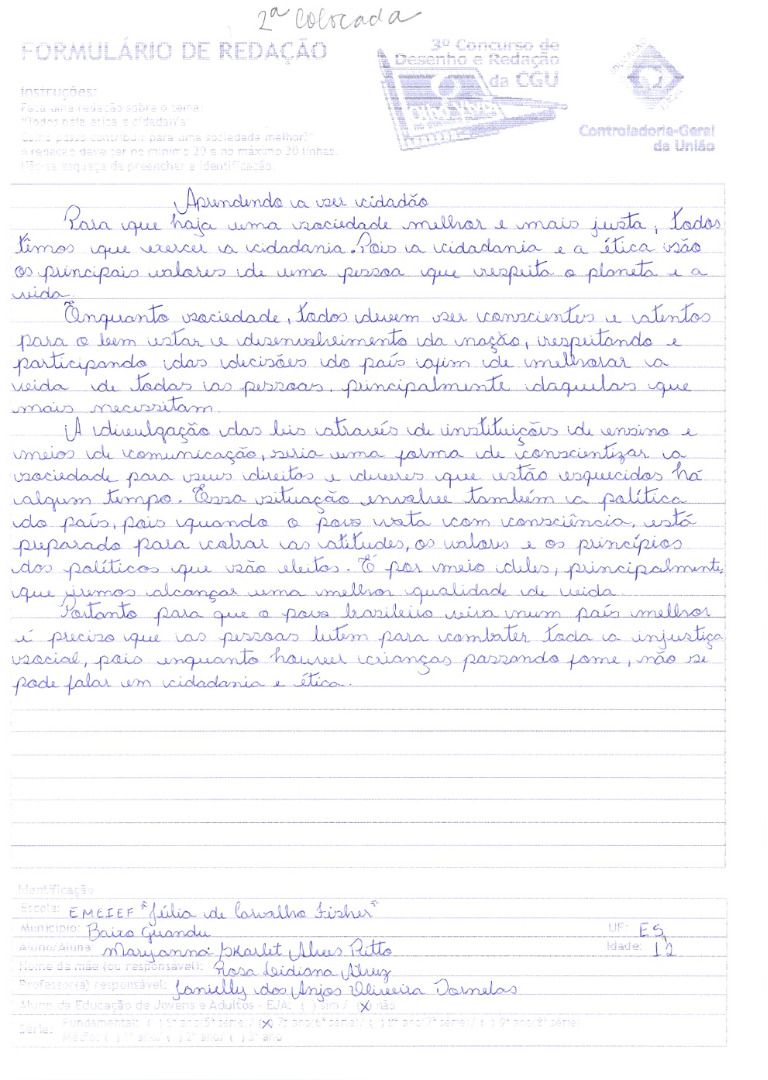 2ª colocada
FORMULÁRIO DE REDAÇÃO
3º Concurso de
Desenho e Redação
da CGU
Controladoria-Geral
da União
Instruções:
Faça uma redação sobre o tema:
"Todos pela ética e cidadania:
Como posso contribuir para uma sociedade melhor?"
A redação deve ter no mínimo 20 e no máximo 30 linhas.
Não se esqueça de preencher a identificação.
Aprendendo a ser cidadão
Para que haja uma sociedade melhor e mais justa, todos
temos que exercer a cidadania. Pois a cidadania e a ética são
os principais valores de uma pessoa que respeita o planeta e a
vida.
Enquanto sociedade, todos devem ser conscientes e atentos
para o bem estar e desenvolvimento da nação, respeitando e
participando das decisões do país afim de melhorar a
vida de todas as pessoas, principalmente daquelas que
mais necessitam.
A divulgação das leis através de instituições de ensino e
meios de comunicação, seria uma forma de conscientizar a
sociedade para seus direitos e deveres que estão esquecidos há
algum tempo. Essa situação envolve também a política
do país, pois quando o povo vota com consciência, está
preparado para cobrar as atitudes, os valores e os princípios
dos políticos que são eleitos. É por meio deles, principalmente,
que iremos alcançar uma melhor qualidade de vida.
Portanto para que o povo brasileiro viva num país melhor
é preciso que as pessoas lutem para combater toda a injustiça
social, pois enquanto houver crianças passando fome, não se
pode falar em cidadania e ética.
Identificação
Escola: EMEIEF "Júlia de Carvalho Fisher"
Município: Baixo Guandu UF: ES
Aluno/Aluna: Maryanna Skarlet Alves Ritto Idade: 12
Nome da mãe (ou responsável): Rosa Lidiana Alvez
Professor(a) responsável: Janielly dos Anjos Oliveira Dornelas
Aluno da Educação de Jovens e Adultos - EJA: ( ) sim / (X) não
Série: Fundamental: ( ) 6º ano/5ª série / (X) 7º ano/6ª série / ( ) 8º ano/7ª série / ( ) 9º ano/8ª série
Médio: ( ) 1º ano/ ( ) 2º ano/ ( ) 3º ano